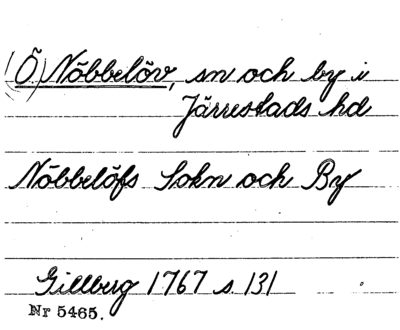 (Ö) Nöbbelöv, sn och by i
Järrestads hd
Nöbbelöfs Sokn och By
Gillberg 1767 s. 131
Nr 5465.